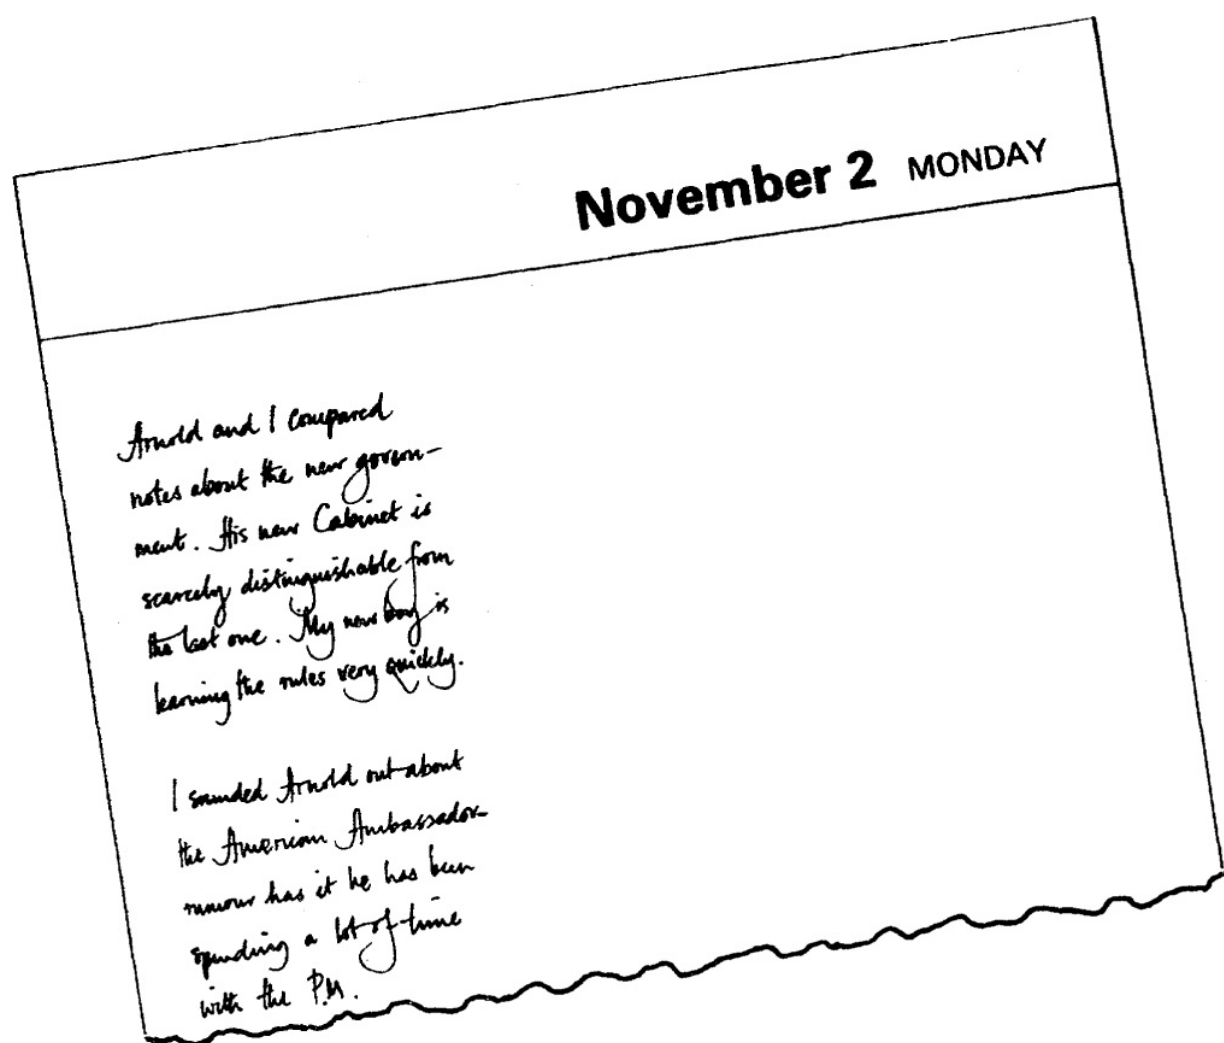 November 2 MONDAY
Arnold and I compared
notes about the new govern-
ment. His new Cabinet is
scarcely distinguishable from
the last one. My new boy is
learning the rules very quickly.
I sounded Arnold out about
the American Ambassador-
rumour has it he has been
spending a lot of time
with the P.M.